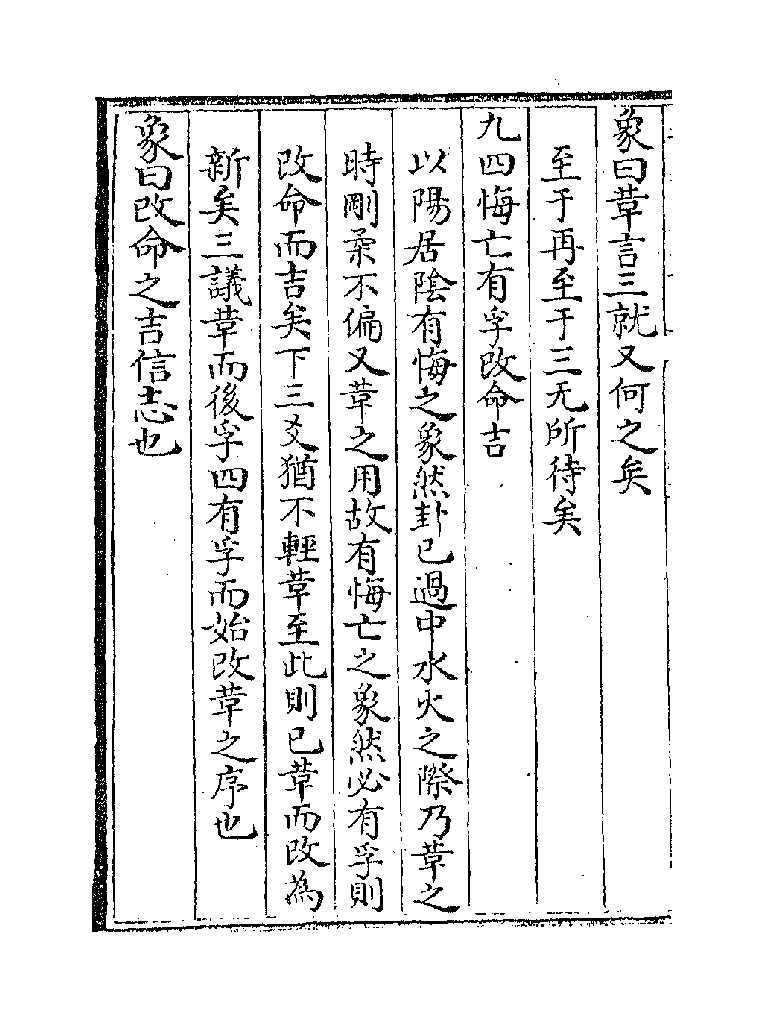 象曰革言三就又何之矣
至于再至于三无所待矣
九四悔亡有孚改命吉
以陽居陰有悔之象然卦已過中水火之際乃革之
時剛柔不偏又革之用故有悔亡之象然必有孚則
改命而吉矣下三爻猶不輕革至此則已革而改為
新矣三議革而後孚四有孚而始改革之序也
象曰改命之吉信志也